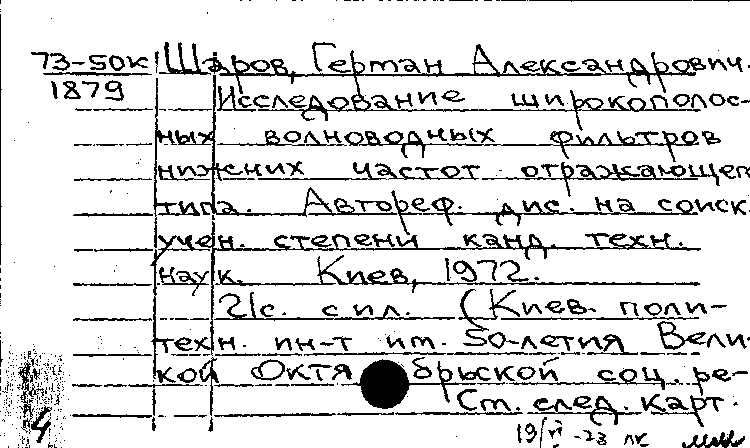 73-50к Шаров, Герман Александрович.
1879 Исследование широкополос-
ных волноводных фильтров
нижних частот отражающего
типа. Автореф. дис. на соиск.
учен. степени канд. техн.
наук. Киев, 1972.
21с. с ил. (Киев. поли-
техн. ин-т им. 50-летия Вели-
кой Октябрьской соц. ре-
Ст. след. карт.
4 19/VI-73 лк